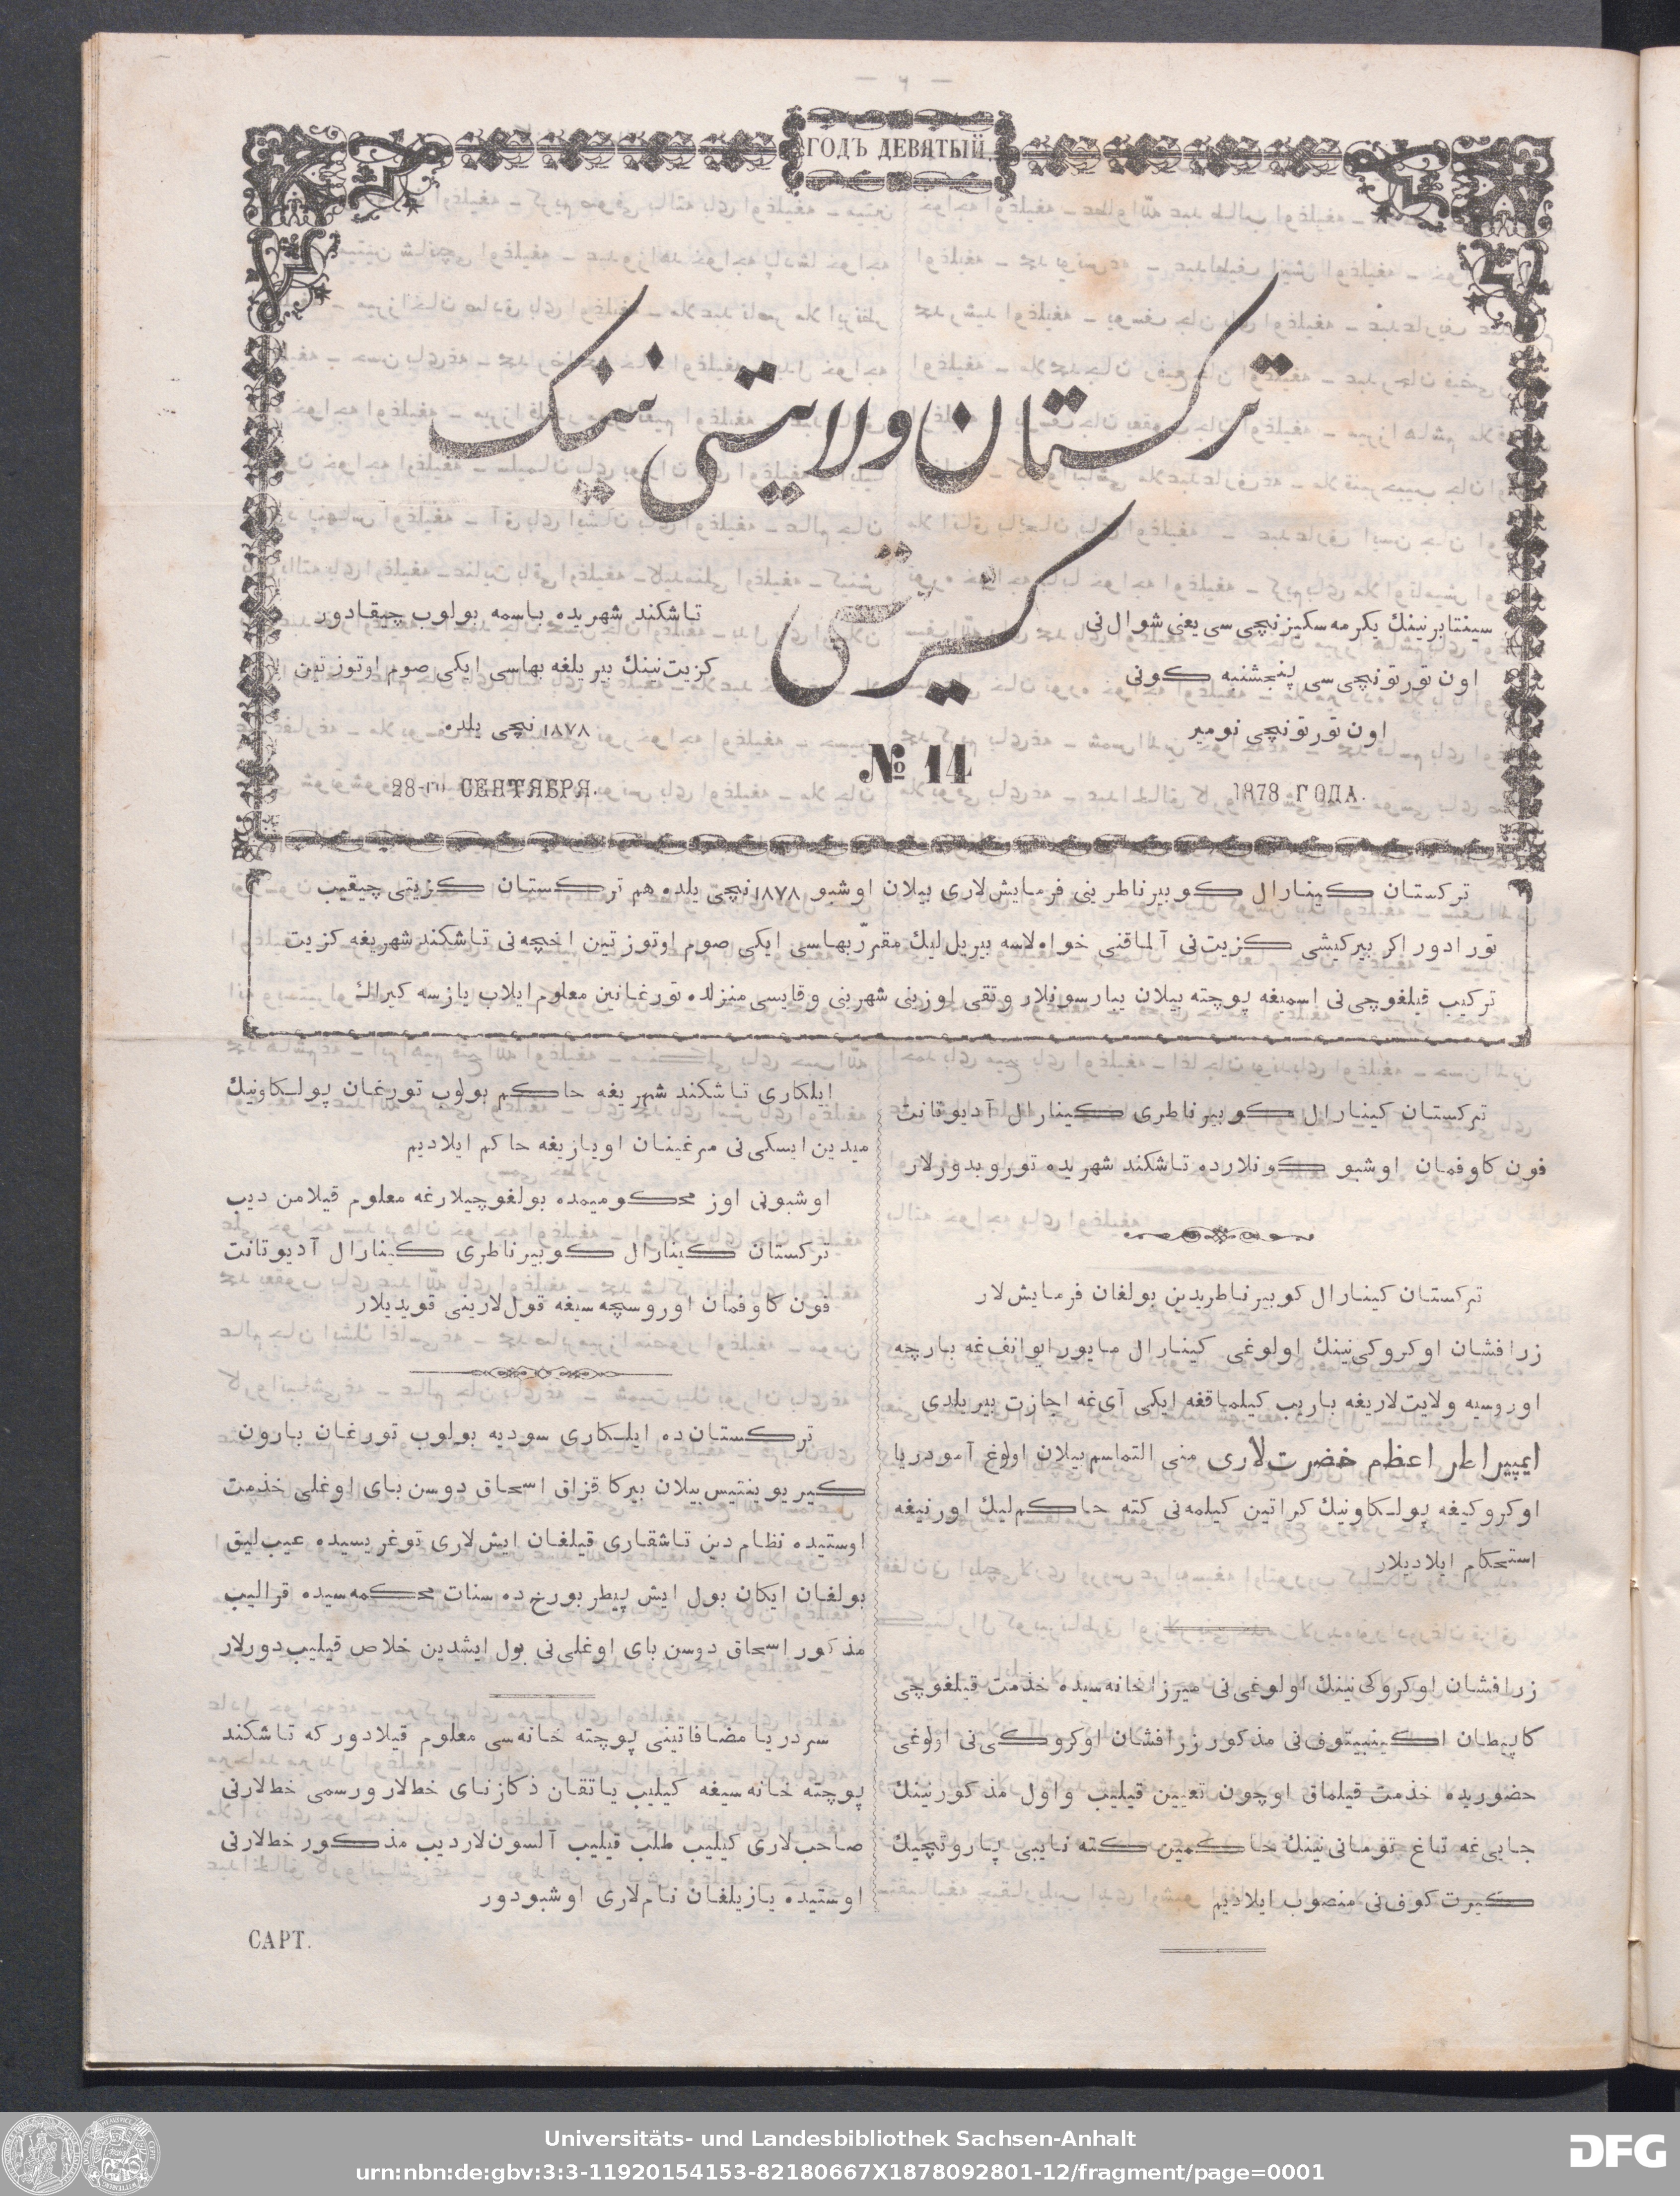 ГОДЪ ДЕВЯТЫЙ.
تركستان ولايتی‌نینك
كزیتی
سینتابرنینك یكرمه سكیزنچی سی یغی شوال‌نی
اون تورتونچی سی پنجشنبه كونی
اون تورتونچی نومیر
1878 ГОДА.
№ 14
تاشكند شهریده باسمه بولوب چیقادور
كزیت‌نینك بیر یلغه بهاسی ایكی صوم اوتوز تین
۱۸۷۸ نچی یلده
28-го СЕНТЯБРЯ.
تركستان كینارال كوبیرناطرینی فرمایش‌لاری بیلان اوشبو ۱۸۷۸نچی یلده هم تركستان كزیتی چیقیب
تورادور اكر بیركیشی كزیت‌نی آلماقنی خواه‌لاسه بیریل‌لیك مقرّر بهاسی ایكی صوم اوتوز تین اخچه‌نی تاشكند شهریغه كزیت
تركیب قیلغوچی‌نی اسمیغه پوچته بیلان ییارسونلار و تقی اوزینی شهرینی وقایسی منزلده تورغانین معلوم ایلاب یازسه كیراك
تركستان كینارال كوبیرناطری كینارال آدیوتانت
فون كاوفمان اوشبو كونلارده تاشكند شهریده توروبدورلار
تركستان كینارال كوبیرناطریدین بولغان فرمایش‌لار
زرافشان اوكروكی‌نینك اولوغی كینارال مایور ایوانف‌غه بارچه
اوروسیه ولایت‌لاریغه باریب كیلماقغه ایكی آی‌غه اجازت بیریلدی
ایمپیراطر اعظم حضرت‌لاری منی التماسم بیلان اولوغ آمودریا
اوكروكیغه پولكاونیك كراتین كیلمه‌نی كته حاكم‌لیك اورنیغه
استحكام ایلادیلار
زرافشان اوكروكی‌نینك اولوغی‌نی میرزاخانه‌سیده خذمت قیلغوچی
كاپیطان اكینبیتوف‌نی مذكور زرافشان اوكروكی‌نی اولوغی
حضوریده خذمت قیلماق اوچون تعیین قیلیب و اول مذكورنینك
جایی‌غه تاغ تومانی‌نینك حاكمین كته نایبی پاروتچیك
كیرت كوف‌نی منصوب ایلادیم
ایلكاری تاشكند شهریغه حاكم بولوب تورغان پولكاونیك
میدین‌ایسكی‌نی مرغینان اویازیغه حاكم ایلادیم
اوشبونی اوز محكومیمده بولغوچیلارغه معلوم قیلامن دیب
تركستان كینارال كوبیرناطری كینارال آدیوتانت
فون كاوفمان اوروسچه‌سیغه قول‌لارینی قویدیلار
تركستان‌ده ایلكاری سودیه بولوب تورغان بارون
كیریوینتیس بیلان بیركا قزاق اسحاق دوسن بای اوغلی خذمت
اوستیده نظام دین تاشقاری قیلغان ایش‌لاری توغریسیده عیب‌لیق
بولغان ایكان بول ایش پیطربورخ‌ده سنات محكمه‌سیده قرالیب
مذكور اسحاق دوسن بای اوغلی‌نی بول ایشدین خلاص قیلیب‌دورلار
سردریا مضافاتینی پوچته خانه‌سی معلوم قیلادوركه تاشكند
پوچته خانه‌سیغه كیلیب یاتقان ذكازنای خط‌لار و رسمی خط‌لارنی
صاحب‌لاری كیلیب طلب قیلیب آلسون‌لار دیب مذكور خط‌لارنی
اوستیده یازیلغان نام‌لاری اوشبودور
САРТ.
Universitäts- und Landesbibliothek Sachsen-Anhalt
urn:nbn:de:gbv:3:3-11920154153-82180667X1878092801-12/fragment/page=0001
DFG